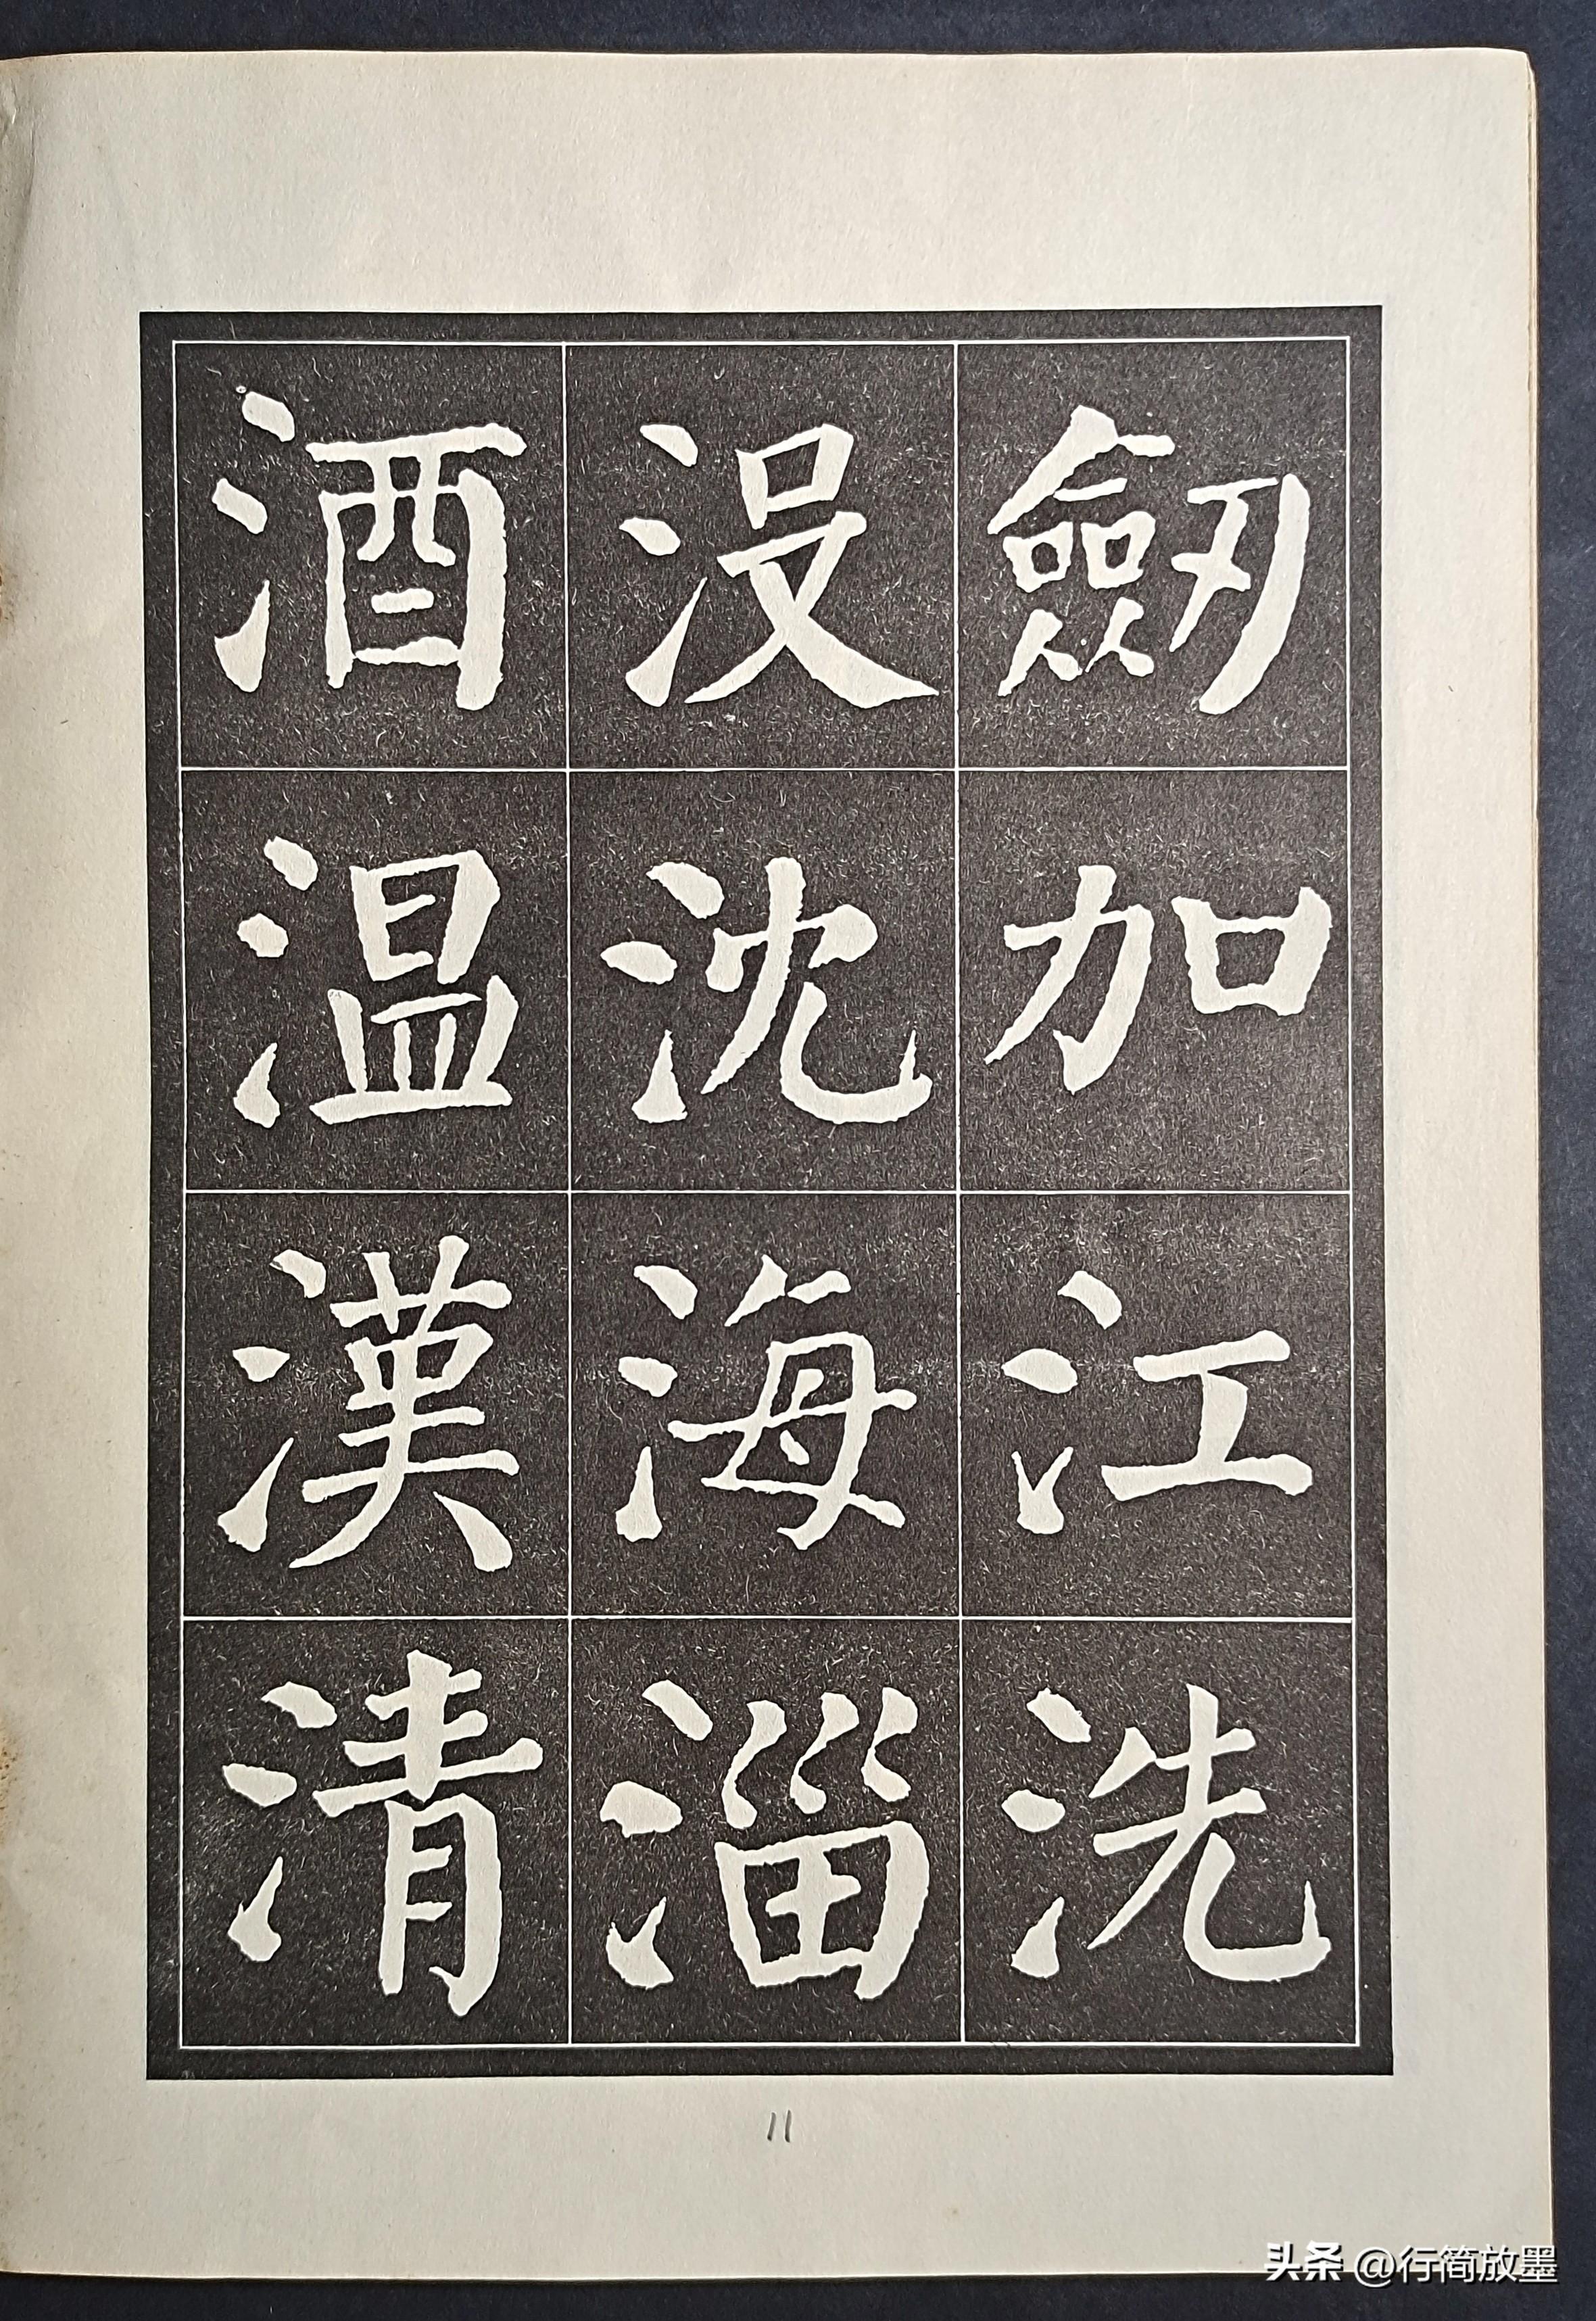 劒加江洗
没沈海淄
酒温漢清
11
头条 @行简放墨